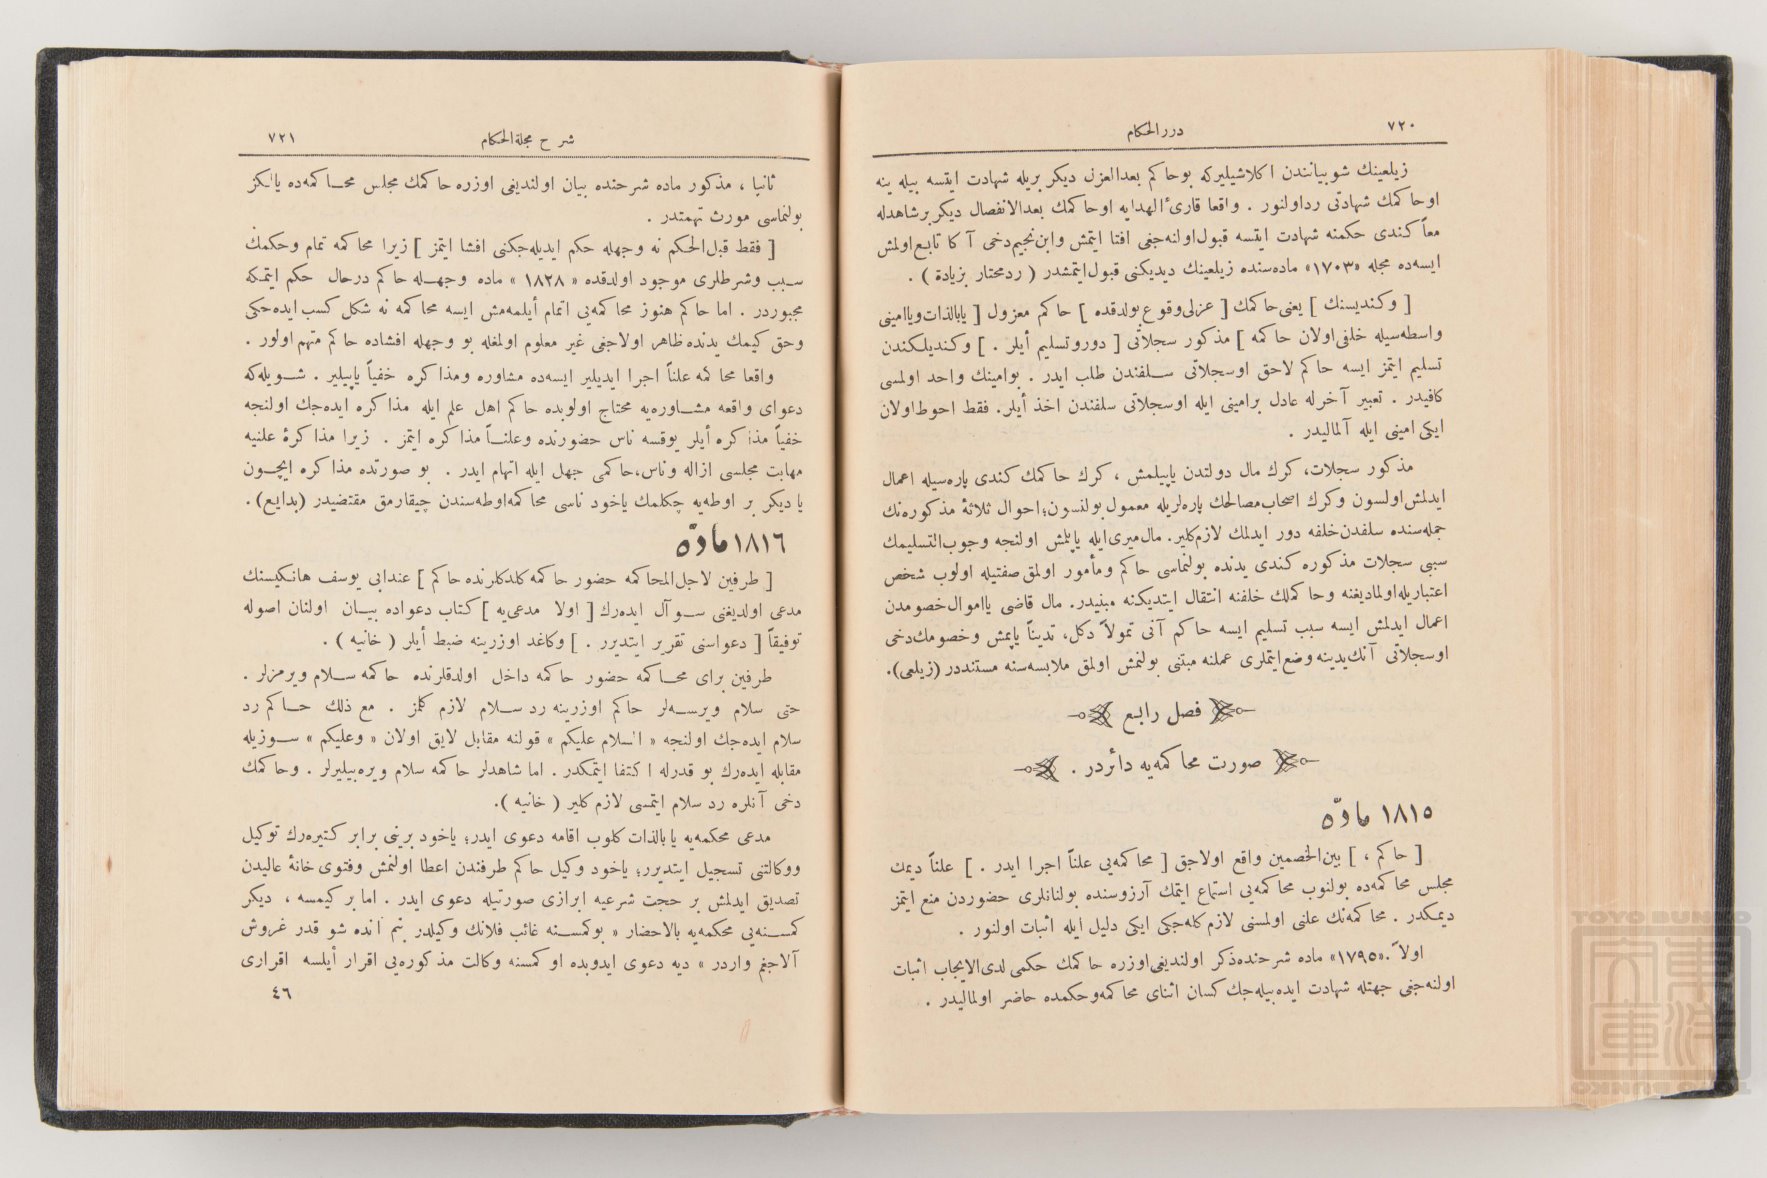 ٧٢٠
دررالحكام
زيلعينك شوبيانندن اكلاشيليركه بوحاكم بعدالعزل ديكر بريله شهادت ايتسه بيله ينه
اوحاكمك شهادتى رداولنور . واقعا قارئ الهدايه اوحاكمك بعدالانفصال ديكر برشاهدله
معاً كندى حكمنه شهادت ايتسه قبول اولنه‌جغى افتا ايتمش وابن‌نجيم دخى آكا تابع اولمش
ايسه‌ده مجله «١٧٠٣» ماده‌سنده زيلعينك ديديكنى قبول ايتمشدر ( ردمحتار بزيادة ) .
[ وكنديسنك ] يعنى حاكمك [ عزلى وقوع بولدقده ] حاكم معزول [ يابالذات وياامينى
واسطه‌سيله خلفى اولان حاكمه ] مذكور سجلاتى [ دوروتسليم أيلر . ] وكنديلكندن
تسليم ايتمز ايسه حاكم لاحق اوسجلاتى سلفندن طلب ايدر . بوامينك واحد اولمسى
كافيدر . تعبير آخرله عادل برامينى ايله اوسجلاتى سلفندن اخذ أيلر . فقط احوط اولان
ايكى امينى ايله آلماليدر .
مذكور سجلات، كرك مال دولتدن ياپيلمش ، كرك حاكمك كندى پاره‌سيله اعمال
ايدلمش اولسون وكرك اصحاب‌مصالحك پاره‌لريله معمول بولنسون؛ احوال ثلاثۀ مذكوره‌نك
جمله‌سنده سلفدن خلفه دور ايدلمك لازم كلير. مال‌ميرى ايله ياپلمش اولنجه وجوب‌التسليمك
سببى سجلات مذكوره كندى يدنده بولنماسى حاكم ومأمور اولمق صفتيله اولوب شخص
اعتباريله اولماديغنه وحاكملك خلفنه انتقال ايتديكنه مبنيدر. مال قاضى يااموال خصومدن
اعمال ايدلمش ايسه سبب تسليم ايسه حاكم آنى تمولاً دكل، تديناً ياپمش وخصومك‌دخى
اوسجلاتى آنك يدينه وضع ايتملرى عملنه مبتنى بولنمش اولمق ملابسه‌سنه مستنددر (زيلعى).
فصل رابع
صورت محاكمه‌يه دائردر .
١٨١٥ مادّه
[ حاكم ، ] بين‌الخصمين واقع اولاجق [ محاكمه‌يى علناً اجرا ايدر . ] علناً ديمك
مجلس محاكمه‌ده بولنوب محاكمه‌يى استماع ايتمك آرزوسنده بولنانلرى حضوردن منع ايتمز
ديمكدر . محاكمه‌نك علنى اولمسنى لازم كله‌جكى ايكى دليل ايله اثبات اولنور .
اولاً «١٧٩٥» ماده شرحنده‌ذكر اولنديغى‌اوزره حاكمك حكمى لدى‌الايجاب اثبات
اولنه‌جغى جهتله شهادت ايده‌بيله‌جك كسان اثناى محاكمه‌وحكمده حاضر اولماليدر .
شرح مجلةالحكام
٧٢١
ثانيا ، مذكور ماده شرحنده بيان اولنديغى اوزره حاكمك مجلس محاكمه‌ده يالكز
بولنماسى مورث تهمتدر .
[ فقط قبل‌الحكم نه وجهله حكم ايديله‌جكنى افشا ايتمز ] زيرا محاكمه تمام وحكمك
سبب وشرطلرى موجود اولدقده « ١٨٢٨ » ماده وجهله حاكم درحال حكم ايتمكه
مجبوردر . اما حاكم هنوز محاكمه‌يى اتمام أيلمه‌مش ايسه محاكمه نه شكل كسب ايده‌جكى
وحق كيمك يدنده ظاهر اولاجغى غير معلوم اولمغله بو وجهله افشاده حاكم متهم اولور .
واقعا محاكمه علناً اجرا ايديلير ايسه‌ده مشاوره ومذاكره خفياً ياپيلير . شويله‌كه
دعواى واقعه مشاوره‌يه محتاج اولوبده حاكم اهل علم ايله مذاكره ايده‌جك اولنجه
خفياً مذاكره أيلر يوقسه ناس حضورنده وعلناً مذاكره ايتمز . زيرا مذاكرۀ علنيه
مهابت مجلسى ازاله وناس،حاكمى جهل ايله اتهام ايدر . بو صورتده مذاكره ايچون
يا ديكر بر اوطه‌يه چكلمك ياخود ناسى محاكمه‌اوطه‌سندن چيقارمق مقتضيدر (بدايع).
١٨١٦ مادّه
[ طرفين لاجل‌المحاكمه حضور حاكمه كلدكلرنده حاكم ] عندابى يوسف هانكيسنك
مدعى اولديغنى سؤال ايده‌رك [ اولا مدعى‌يه ] كتاب دعواده بيان اولنان اصوله
توفيقاً [ دعواسنى تقرير ايتديرر . ] وكاغد اوزرينه ضبط أيلر ( خانيه ) .
طرفين براى محاكمه حضور حاكمه داخل اولدقلرنده حاكمه سلام ويرمزلر .
حتى سلام ويرسه‌لر حاكم اوزرينه رد سلام لازم كلمز . مع ذلك حاكم رد
سلام ايده‌جك اولنجه « السلام عليكم » قولنه مقابل لايق اولان « وعليكم » سوزيله
مقابله ايده‌رك بو قدرله اكتفا ايتمكدر . اما شاهدلر حاكمه سلام ويره‌بيليرلر . وحاكمك
دخى آنلره رد سلام ايتمسى لازم كلير ( خانيه ).
مدعى محكمه‌يه يابالذات كلوب اقامه دعوى ايدر؛ ياخود برينى برابر كتيره‌رك توكيل
ووكالتنى تسجيل ايتديرر؛ ياخود وكيل حاكم طرفندن اعطا اولنمش وفتوى خانۀ عاليدن
تصديق ايدلمش بر حجت شرعيه ابرازى صورتيله دعوى ايدر . اما بر كيمسه ، ديكر
كمسنه‌يى محكمه‌يه بالاحضار « بوكمسنه غائب فلانك وكيلدر بنم آنده شو قدر غروش
آلاجغم واردر » ديه دعوى ايدوبده او كمسنه وكالت مذكوره‌يى اقرار أيلسه اقرارى
٤٦
TOYO BUNKO